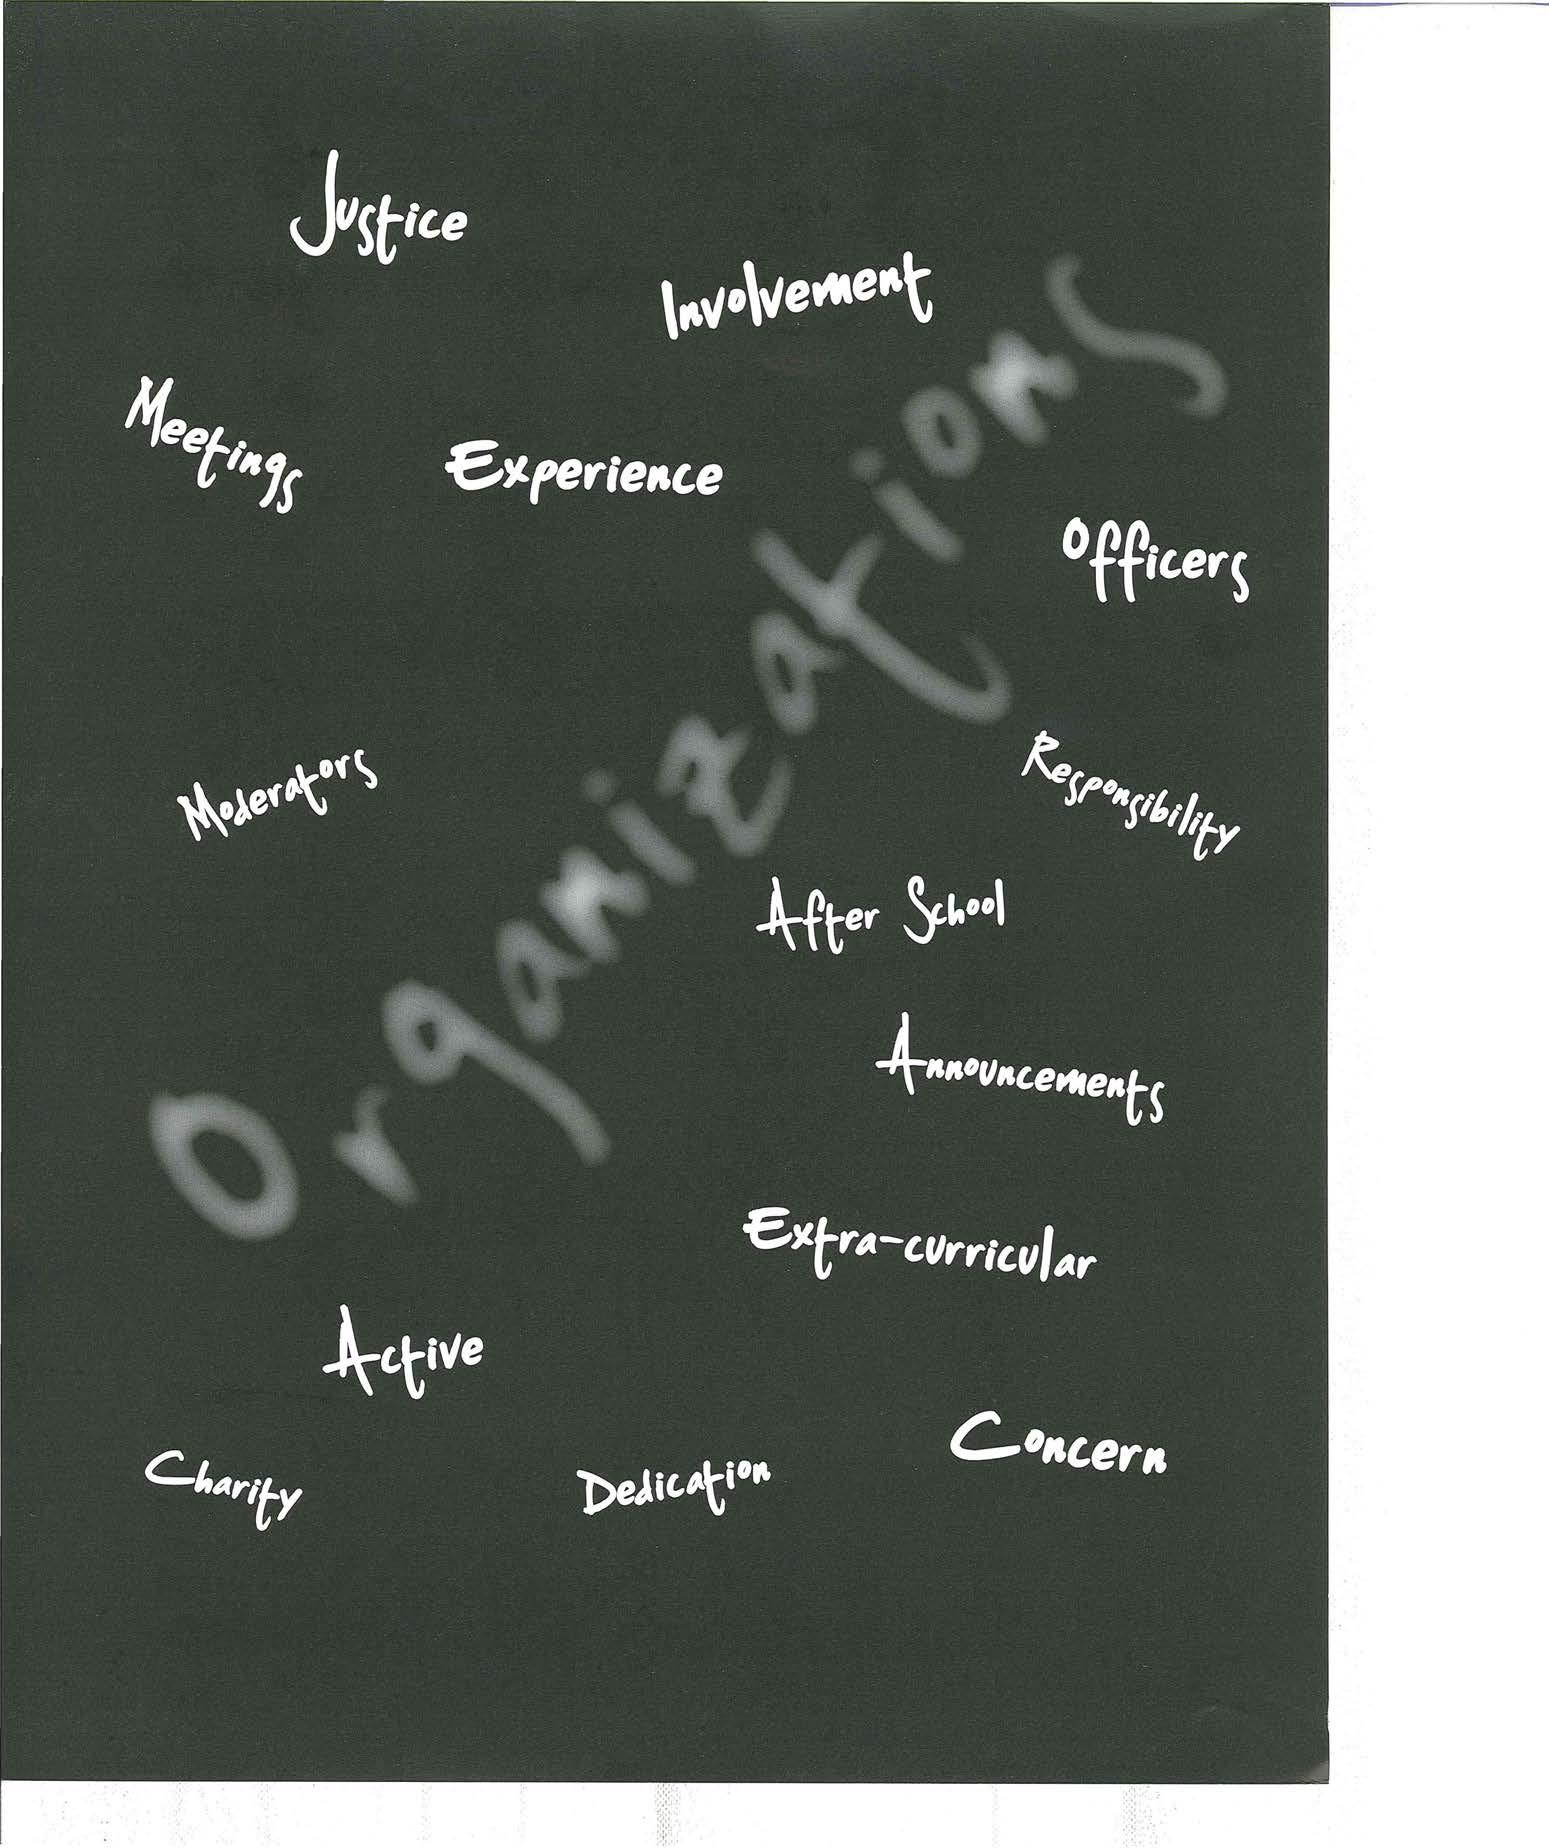 Justice
Involvement
Meetings
Experience
Officers
Organizations
Moderators
Responsibility
After School
Announcements
Extra-curricular
Active
Concern
Charity
Dedication